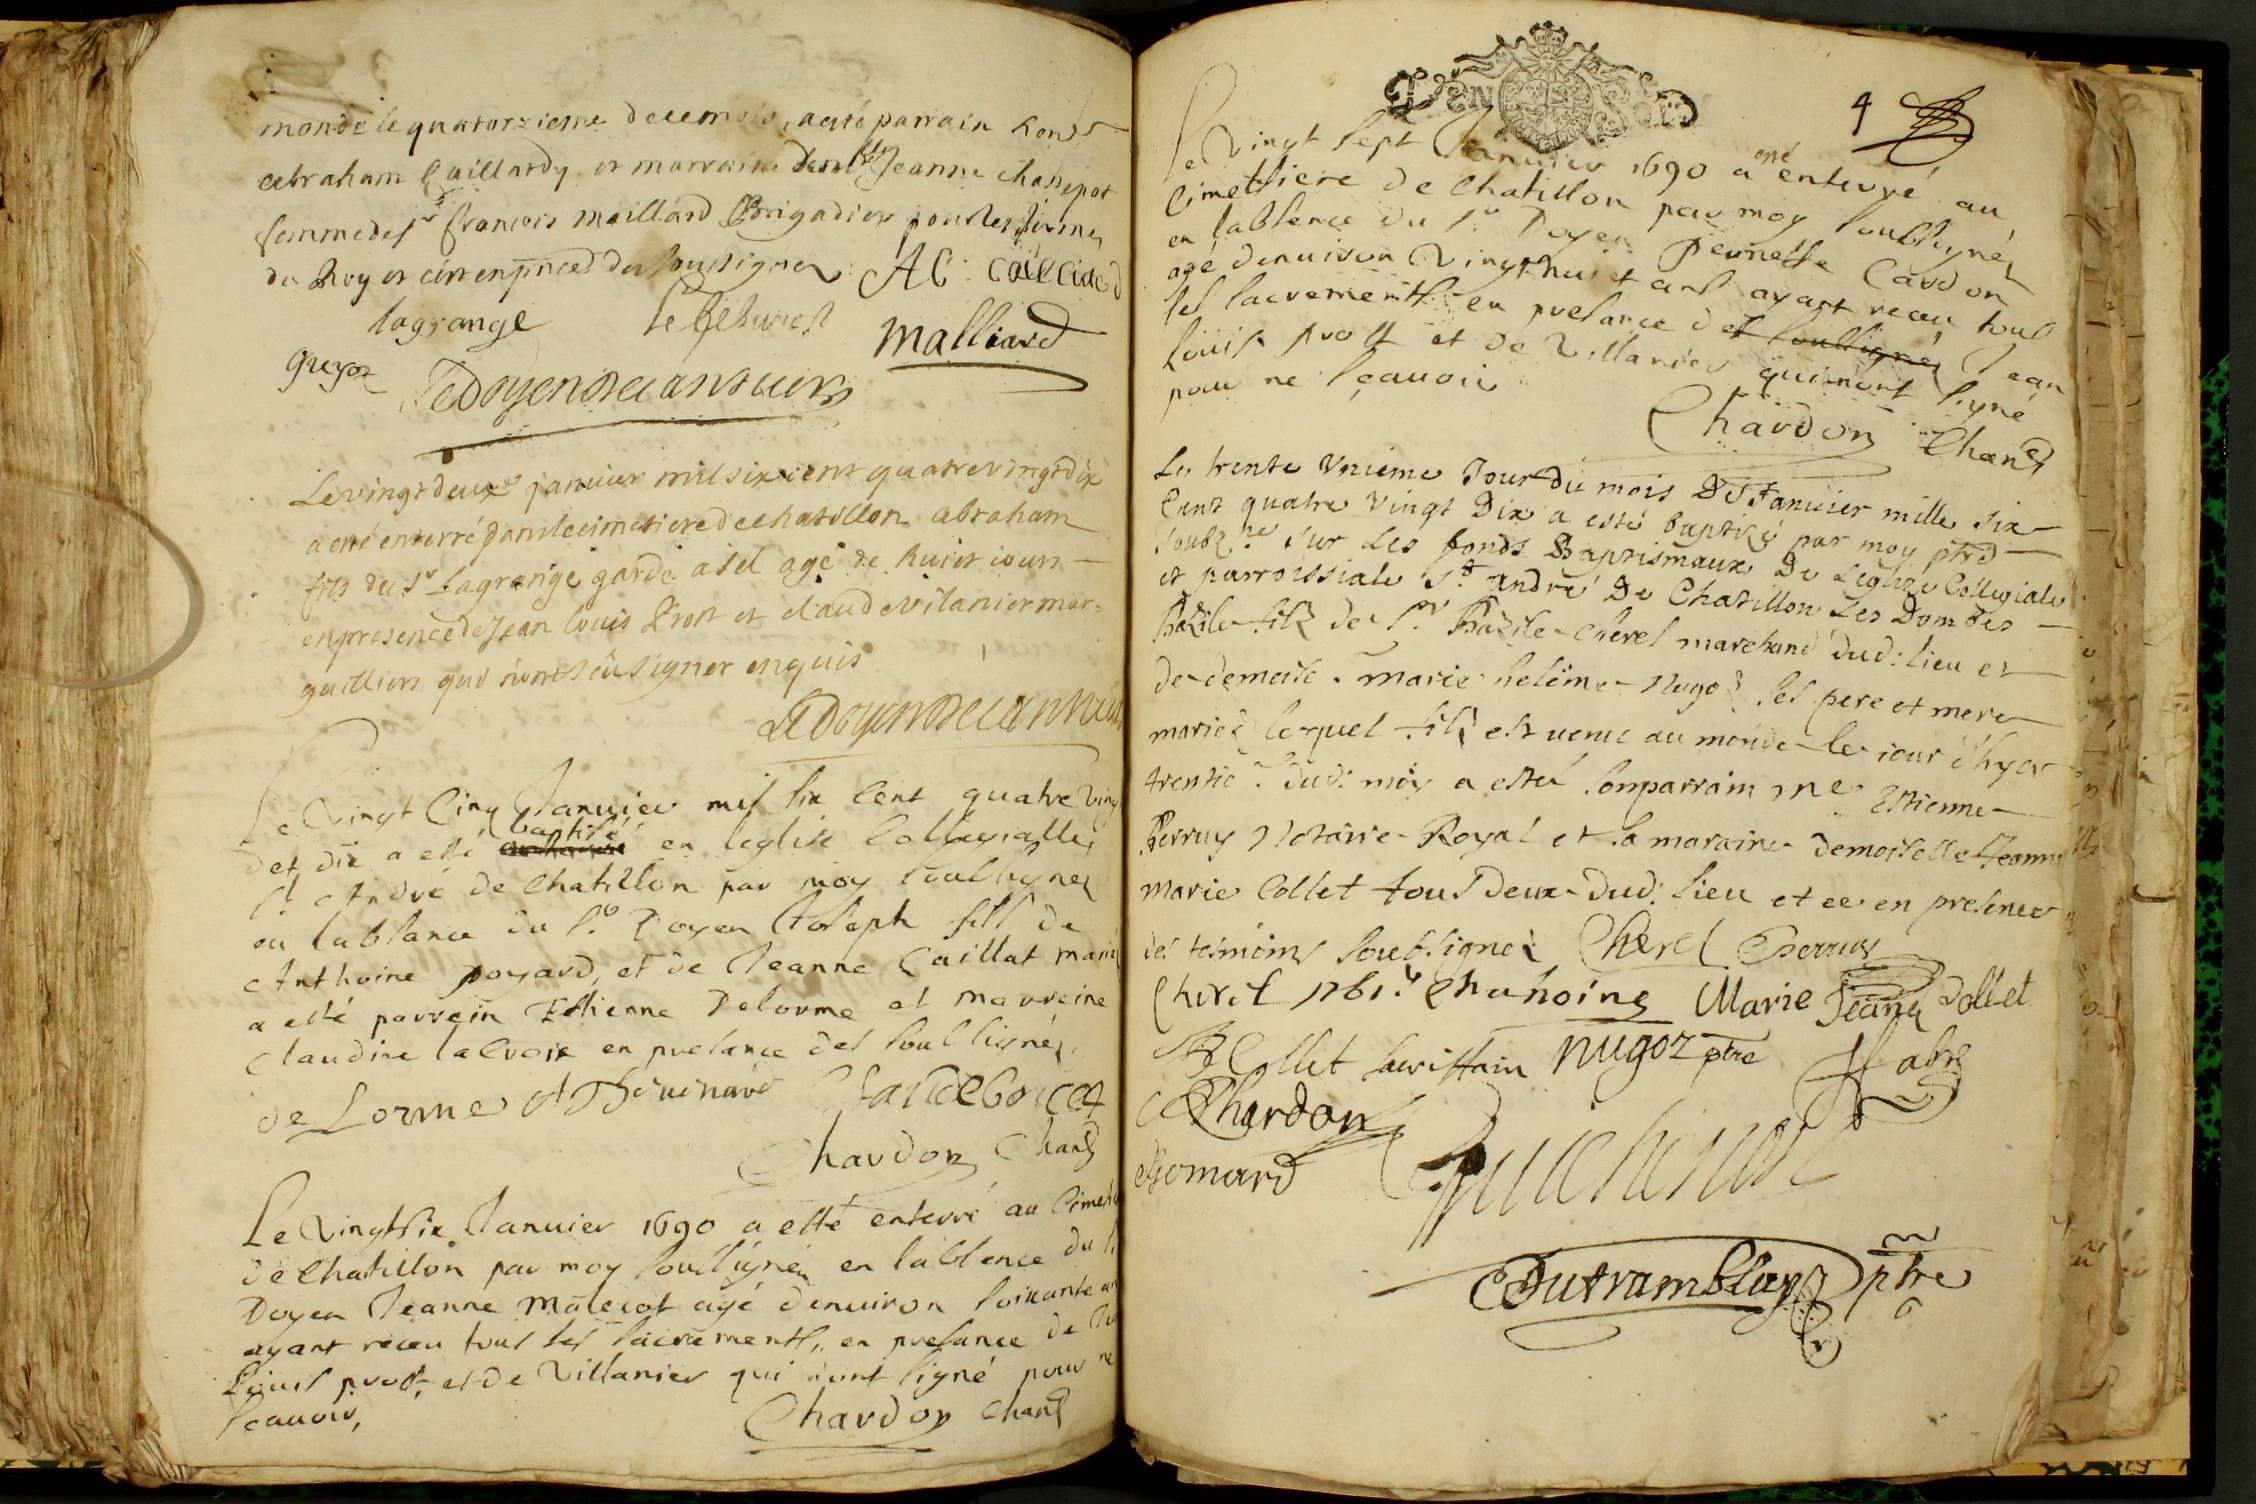 monde le quatorzieme de ce mois, a esté parrain hon
abraham Caillardy et marraine dem.lle Jeanne chassepot
femme de s.r francois maillard Brigadier pour les fermes
du Roy et ce en pnce des soussignes AC : CAILLIARD
lagrange lefebure malliard
guyot Ledoyendecanruers
Le vingt deux.e januier mil six cent quatre vingt dix
a esté enterré dans le cimetiere de chatillon abraham
fils du s.r lagrange garde a sel agé de huict iours
en presence de Jean louis Prost et claude vilanier mar=
guilliers qui n'ont sçû signer enquis
Ledoyendecan
Le vingt Cinq Januier mil six Cent quatre ving
det dix a esté baptisé en leglise Collegialle
s.t André de Chatillon par moy soubsignez
en labsance du s.r Doyen Joseph fils de
Anthoine poyard, et de Jeanne Caillat mariés
a esté parrein Estienne Delorme et marreine
Claudine laCroix en presance des soubsignés
de Lorme
Chardon Chan.e
Le vingt six Januier 1690 a esté enterré au Cimet
de Chatillon par moy soubsigné en labsence du s
Doyen Jeanne malecot agé denuiron soixante an
ayant receu tous ses sacrements, en presance de Je
Louis prost, et de villanier qui n'ont signé pour ne
sçauoir,
Chardon Chan.e
4
Le vingt sept Januier 1690 a esté enterré au
Cimettiere de Chatillon par moy soubsignés
en labsence du s.r Doyen Pernette Cardon
agé denuiron vingt huict ans ayant receu tous
ses sacrements en presance des soussignés Jean
Louis prost et de villanier qui n'ont signé
pour ne sçauoir
Chardon Chan.e
Le trente Vnieme Jour du mois De Januier mille six
Cent quatre Vingt Dix a esté baptizé par moy ptre
soubz.ne sur Les fonds Baptismaux De Leglize Collegiale
et parroissiale s.t andré De Chatillon Les Dombes
Bazile filz de s.r Bazile Cherel marchand dud: lieu et
de demois. marie heleine Nugoz ses pere et mere
mariez lequel filz est uenu au monde le iour d'hyer
trentie. dud: mois a esté son parrain me Estienne
Perruy Notaire Royal et la maraine demoiselle Jeanne
marie Collet tous deux dud: lieu et ce en presence
des tesmoins soubsignez Cherel Perruy
Cherel chanoine Marie Jeane Collet
Collet sacristain nugoz ptre fabre
Chardon
Gomard
Dutramblay ptre